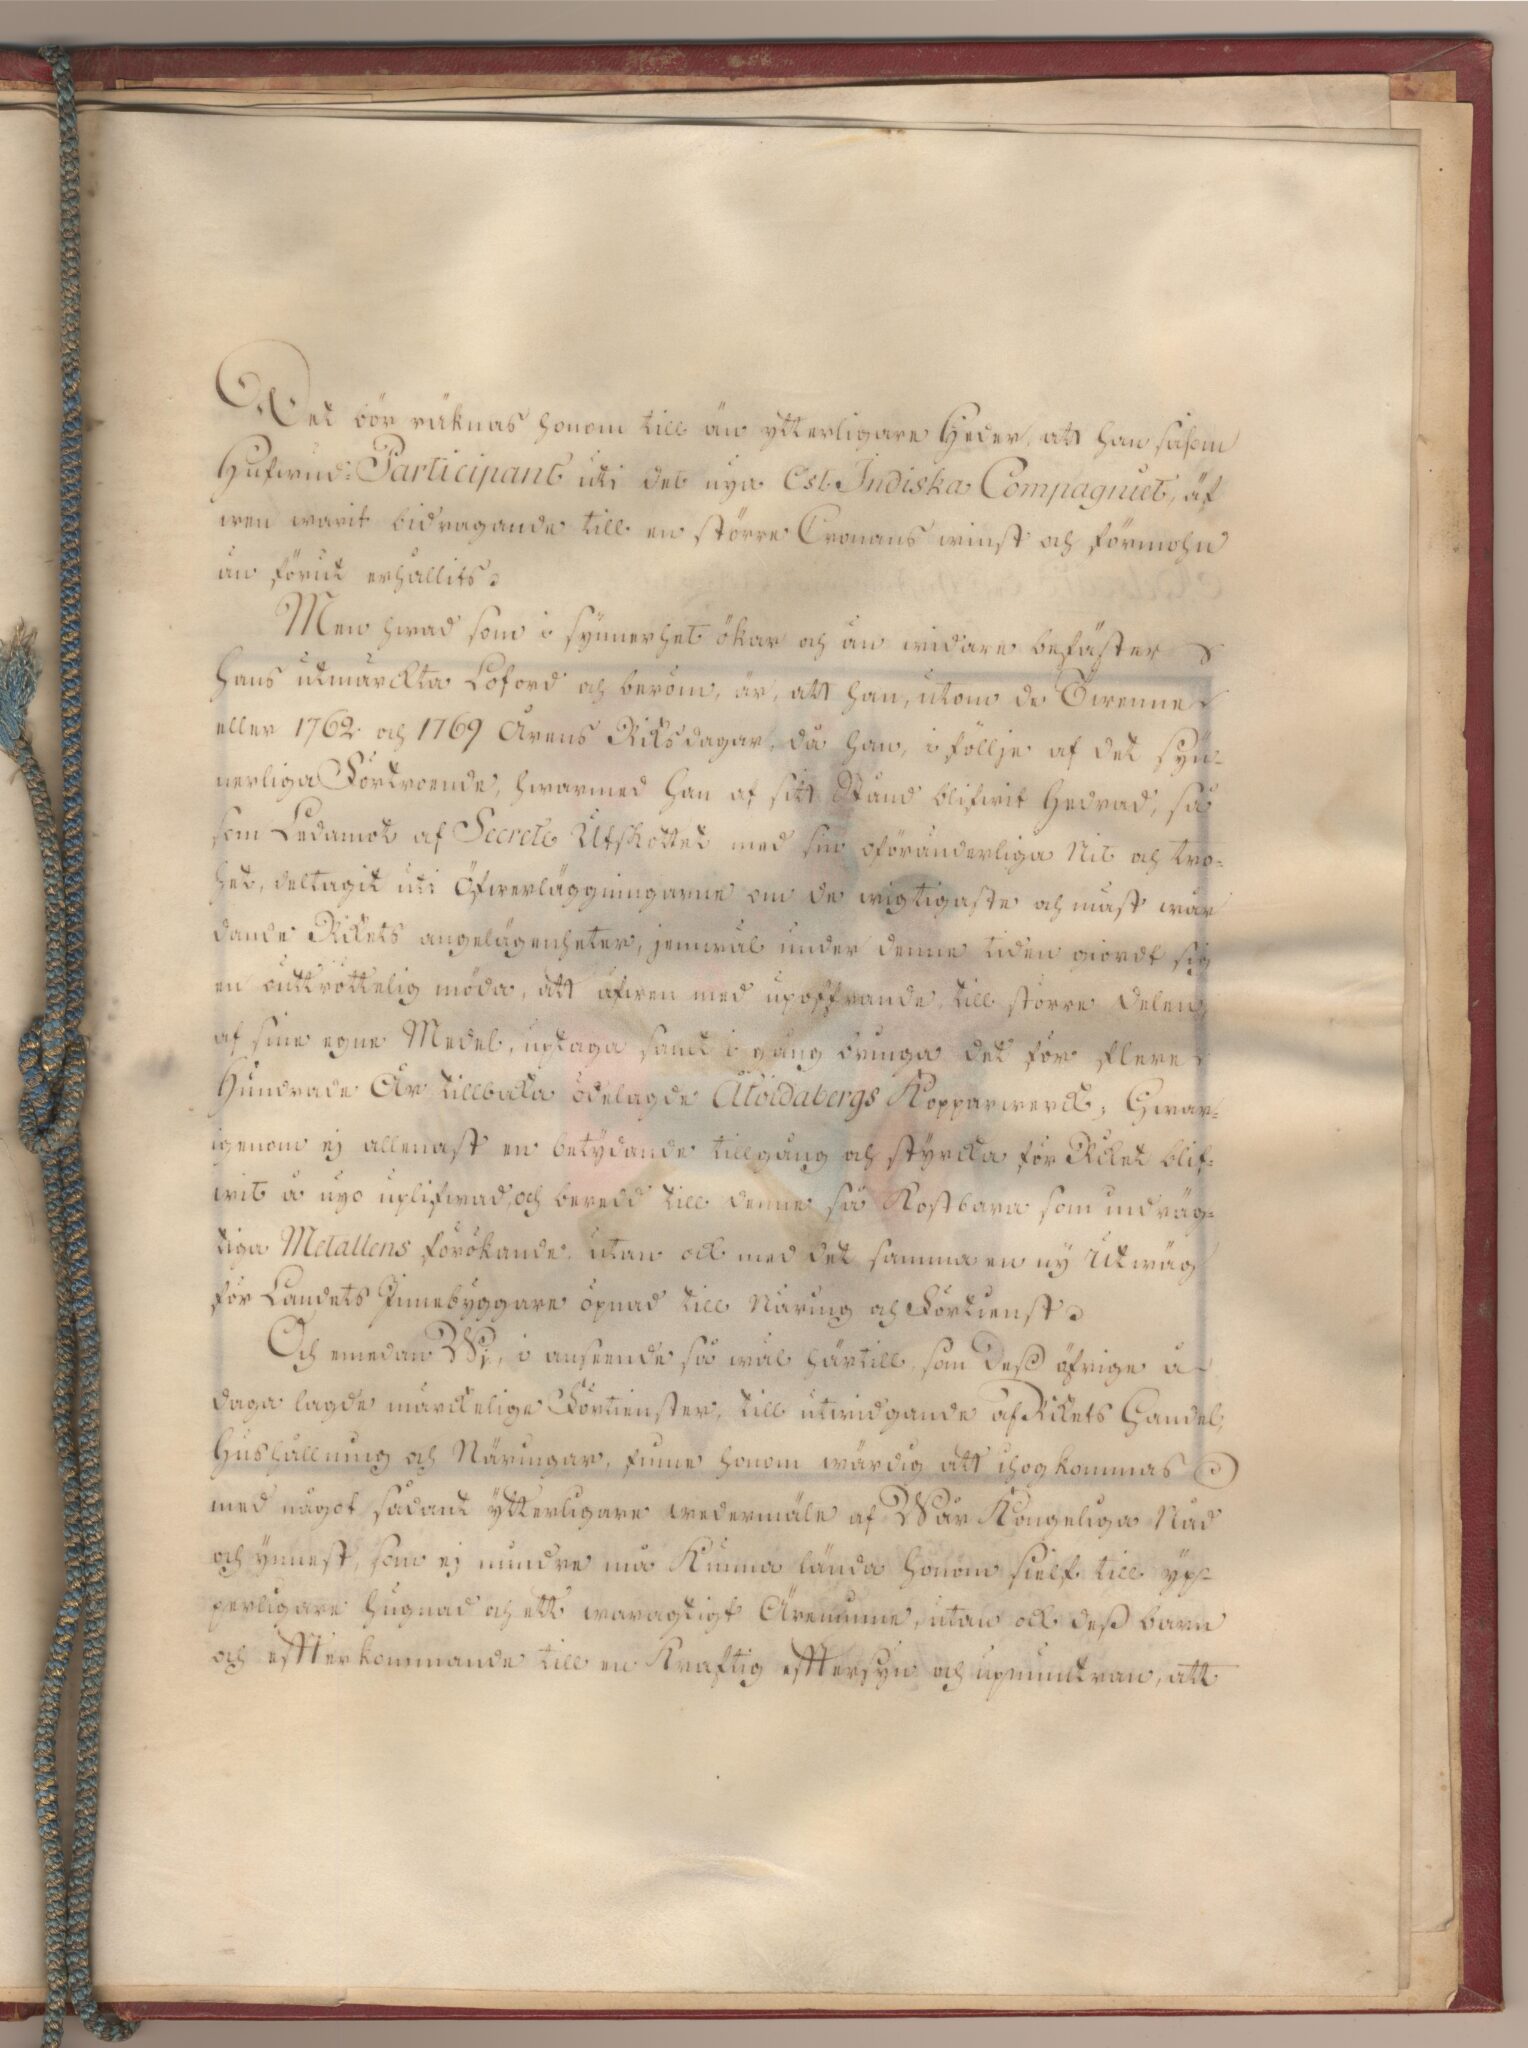 Det bör räknas honom till än ytterligare Heder, att han såsom
Hufwud-Participant uti det nya Ost Indiska Compagniet, äf
wen warit bidragande till en större Cronans winst och förmohn
än förut erhållits.
Men hwad som i synnerhet ökar och än widare befäster
Hans utmärckta Loford och beröm, är, att han, utom de Twenne
eller 1762 och 1769 Årens Riksdagar, då han, i föllje af det syn-
nerliga Förtroende, hwarmed Han af sitt Stånd blifwit Hedrad, så
som Ledamot af Secrete Utskottet med sin oföränderliga Nit och tro-
het, deltagit uti Öfwerläggningarne om de wigtigaste och mäst wår
dande Rikets angelägenheter, jemwäl under denne tiden giordt sig
en outtröttelig möda, att äfwen med upoffrande, till större delen
af sine egne Medel, uptaga samt i gång bringa det för flere
Hundrade År tillbaka ödelagde Åtvidabergs Kopparwerck; Hwar-
igenom ej allenast en betydande tillgång och styrcka för Riket blif-
wit å nyo uplifwad, och beredd till denne så Kostbara som indräg-
tiga Metallens förökande, utan ock med det samma en ny Utwäg
för Landets Innebyggare öpnad till Näring och Förtienst.
Och emedan Wj, i anseende så wäl härtill, som Dess öfrige å
daga lagde märckelige Förtienster, till utwidgande af Rikets Handel,
Hushållning och Näringar, finne honom wärdig att ihogkommas
med något sådant ytterligare wedermäle af Wår Kongeliga Nåd
och ynnest, som ej mindre må Kunna lända honom sielf till yp-
perligare hugnad och ett waragtigt Äreminne, utan ock dess barn
och effterkommande till en Kraftig efftersyn och upmuntran, att